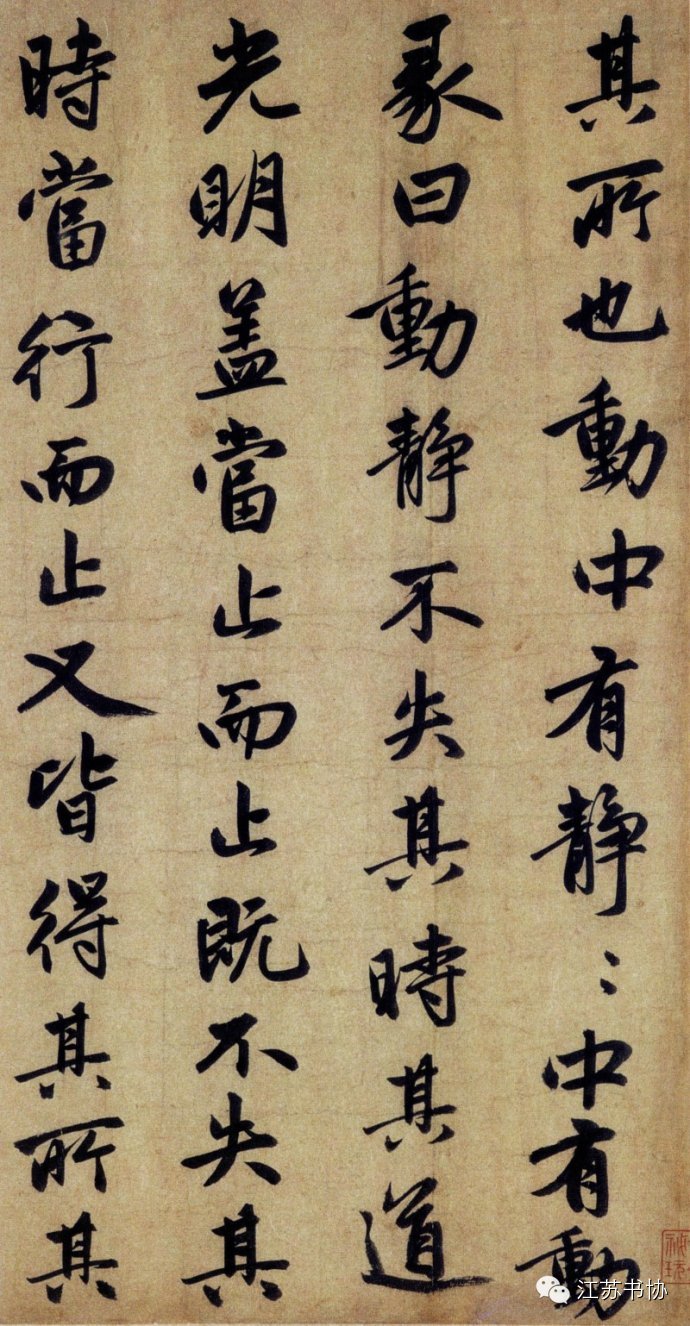 其所也動中有靜〻中有動
彖曰動靜不失其時其道
光明盖當止而止既不失其
時當行而止又皆得其所其
江苏书协